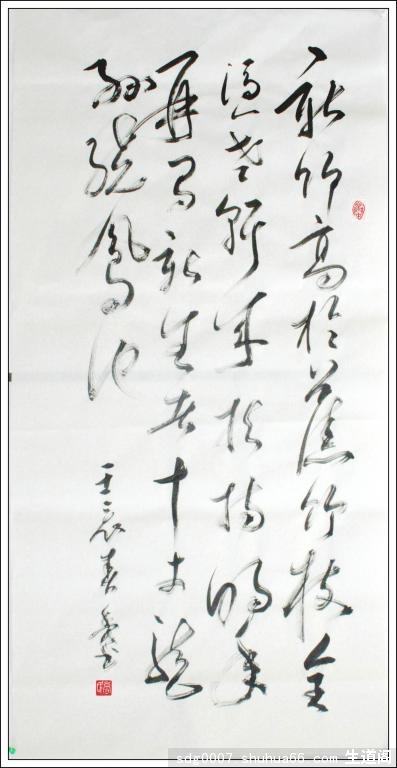 新竹高於舊竹枝全
憑老幹為扶持明年
再有新生者十丈龍
孫繞鳳池
壬辰春
sdg0007 shuhua66.com 生道阁